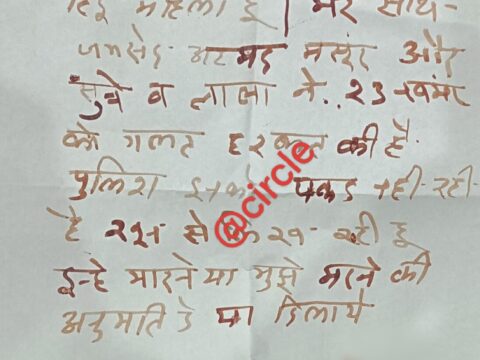 हिंदू महिला हूं / मेरे साथ-
जमसेद अहमद मसूंद और
मुन्ने व लाला ने.. २३ नवंमर
को गलत हरकत की है.
पुलिश इनको पकड नही रही-
है खून से लिख रही हू
इन्हे मारने या मुझे मरने की
अनुमति दे या दिलाये
@circle